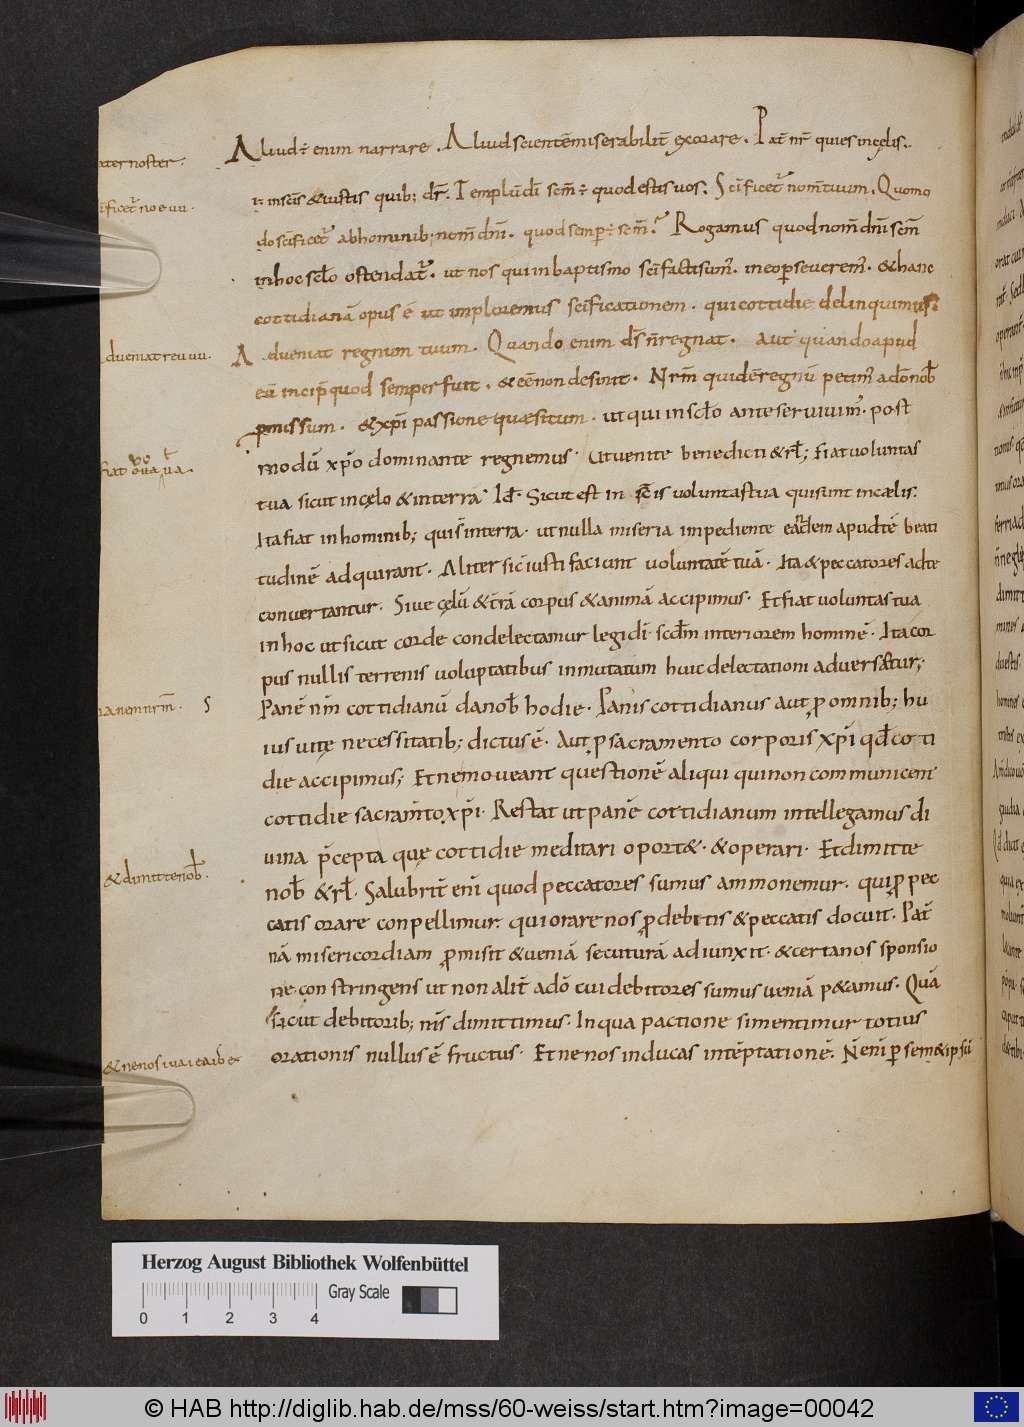 Aliud ÷ enim narrare. Aliud scientē miserabilit̄ exorare. Pat̄ nr̄ qui es in cęlis.
aternoster.
i; in scīs & iustis quib; dr̄. Templū dī scm̄ ÷ quod estis vos. Scīficet̄ nom̄ tuum. Quomo
do scīficet̄ ab hominib; nom̄ dnī. quod semp̄ ÷ scm̄. Rogamus quod nom̄ dnī scm̄
in hoc sclo ostendat̄. ut nos qui in baptismo scīfacti sum̄. in eo p̄severem̄. & hanc
cottidianā opus ē ut imploremus scīficationem. qui cottidie delinquimus.
dveniat reuu.
Adveniat regnum tuum. Quando enim dīs n̄ regnat. aut quando apud
eū incip̄ quod semper fuit. & eē non desinit. Nrm̄ quidē regnū petim̄ a dō nob̄
p̄missum. & xp̄i passione quæsitum. ut qui in sclo ante servivim̄. post
modū xp̄o dominante regnemus. Ut venite benedicti & rl̄; Fiat voluntas
tua sicut in cęlo & in terra. Id ÷. Sicut est in scīs voluntas tua qui sunt in cælis.
Ita fiat in hominib; qui s̄ in terra. ut nulla miseria impediente eandem apud tē beati
tudinē adquirant. Aliter sic iusti faciunt voluntatē tuā. Ita & peccatores ad te
convertantur. Sive cęlū & trā corpus & animā accipimus. Et fiat voluntas tua
in hoc ut sicut corde condelectamur legi dī scdm̄ interiorem hominē. Ita cor
pus nullis terrenis voluptatibus inmutatum huic delectationi adversatur;
anem nrm̄.
Panē nrm̄ cottidianū da nob̄ hodie. Panis cottidianus aut p̄ omnib; hu
ius vitę necessitatib; dictus ē. Aut p̄ sacramento corporis xp̄i qd̄ cotti
die accipimus; Et ne moveant questionē aliqui qui non communicent
cottidie sacramto xp̄i. Restat ut panē cottidianum intellegamus di
vina p̄cepta quę cottidie meditari oport&. & operari. Et dimitte
& dimitte nob̄.
nob̄ & rl̄. Salubrit̄ enī quod peccatores sumus ammonemur. qui p̄ pec
catis orare conpellimur. qui orare nos p̄ debitis & peccatis docuit. Pat̄
nā misericordiam p̄misit & veniā secuturā adiunxit. & certa nos sponsio
ne constringens ut non alit̄ a dō cui debitores sumus veniā p&amus. Quā
sicut debitorib; nrīs dimittimus. In qua pactione si mentimur totius
orationis nullus ē fructus. Et ne nos inducas in tēptationē. N̄ enī p̄ sem&ipsū
Herzog August Bibliothek Wolfenbüttel
Gray Scale
0 1 2 3 4
© HAB http://diglib.hab.de/mss/60-weiss/start.htm?image=00042